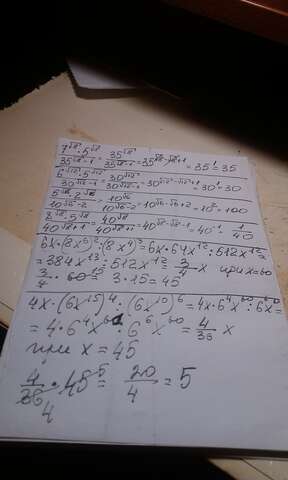 7^√12 · 5^√12 / 35^(√12-1) = 35^√12 / 35^(√12-1) = 35^(√12-√12+1) = 35¹ = 35
6^√12 · 5^√12 / 30^(√12-1) = 30^√12 / 30^(√12-1) = 30^(√12-√12+1) = 30¹ = 30
5^√6 · 2^√6 / 10^(√6-2) = 10^√6 / 10^(√6-2) = 10^(√6-√6+2) = 10² = 100
8^√8 · 5^√8 / 40^(√8+1) = 40^√8 / 40^(√8+1) = 40^(√8-√8-1) = 40⁻¹ = 1/40
6x·(8x⁶)² : (8x⁴)³ = 6x·64x¹² : 512x¹² =
= 384x¹³ : 512x¹² = 3/4 x при x=60
3/4 · 60 15 = 3·15 = 45
4x·(6x¹⁵)⁴ : (6x¹⁰)⁶ = 4x·6⁴x⁶⁰ : 6⁶x⁶⁰ =
= 4·6⁴x⁶¹ : 6⁶x⁶⁰ = 4/36 x
при x = 45
4/36 4 · 45 5 = 20/4 = 5